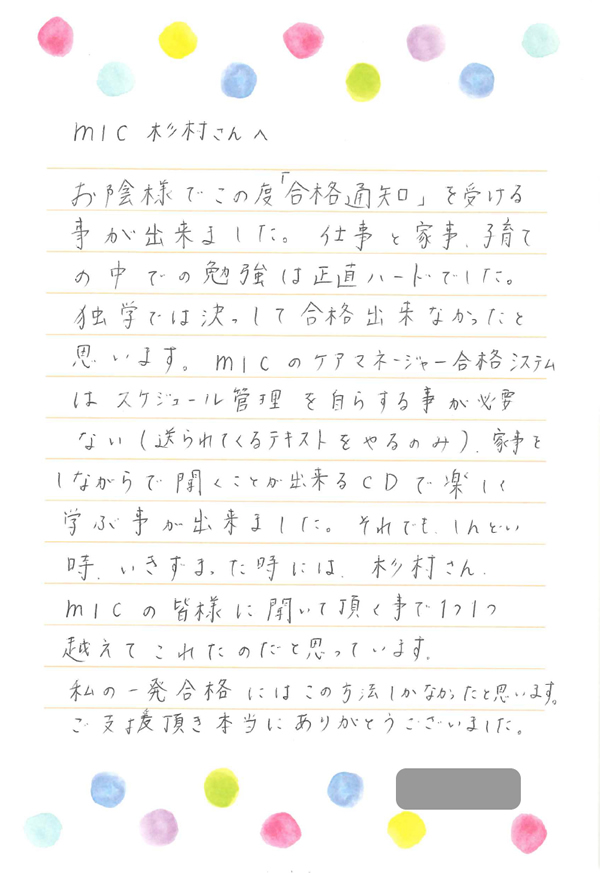 mic 杉村さんへ
お陰様でこの度「合格通知」を受ける
事が出来ました。仕事と家事、子育て
の中での勉強は正直ハードでした。
独学では決っして合格出来なかったと
思います。micのケアマネージャー合格システム
はスケジュール管理を自らする事が必要
ない(送られてくるテキストをやるのみ)、家事を
しながらで聞くことが出来るCDで楽しく
学ぶ事が出来ました。それでも、しんどい
時、いきずまった時には、杉村さん、
micの皆様に聞いて頂く事で1つ1つ
越えてこれたのだと思っています。
私の一発合格にはこの方法しかなかったと思います。
ご支援頂き本当にありがとうございました。